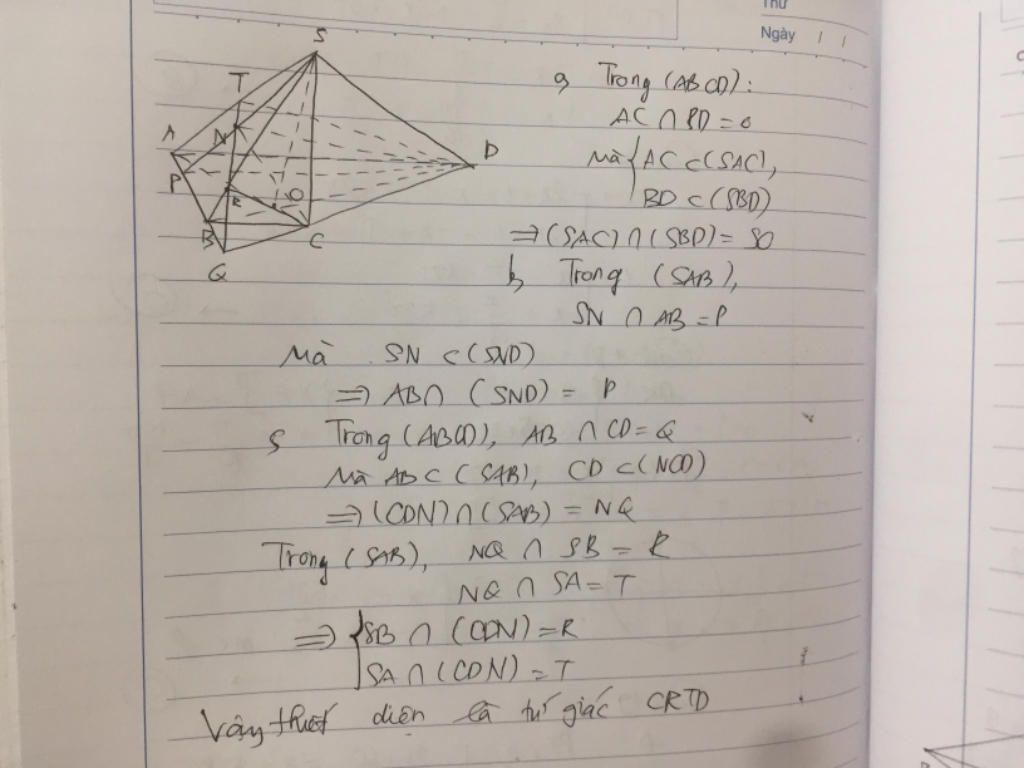 Thứ
Ngày / /
S
T
A
N
D
P
R
O
B
C
Q
a, Trong (ABCD):
AC ∩ BD = O
Mà { AC ⊂ (SAC),
BD ⊂ (SBD)
⇒ (SAC) ∩ (SBD) = SO
b, Trong (SAB),
SN ∩ AB = P
Mà SN ⊂ (SND)
⇒ AB ∩ (SND) = P
c, Trong (ABCD), AB ∩ CD = Q
Mà AB ⊂ (SAB), CD ⊂ (NCD)
⇒ (CDN) ∩ (SAB) = NQ
Trong (SAB), NQ ∩ SB = R
NQ ∩ SA = T
⇒ { SB ∩ (CDN) = R
SA ∩ (CDN) = T
Vậy thiết diện là tứ giác CRTD